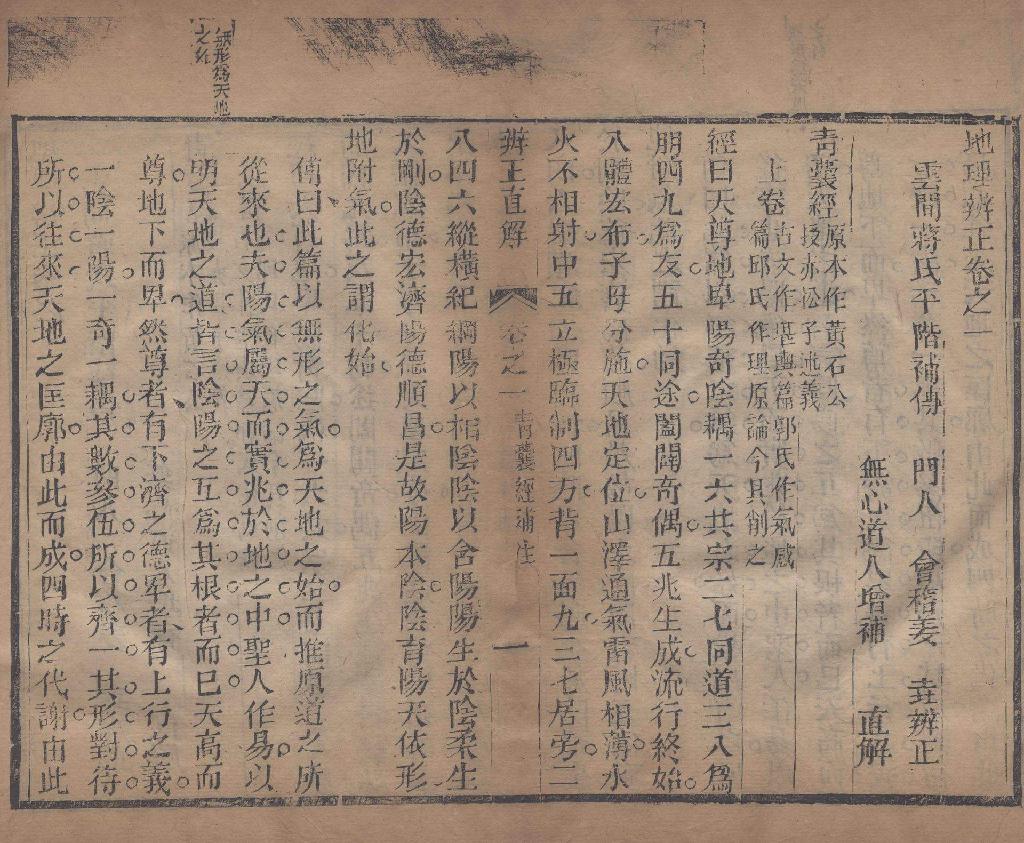 地理辨正卷之一
雲間蔣氏平階補傳　門人　會稽姜　垚辨正
無心道人增補　直解
青囊經原本作黃石公
授赤松子述義
上卷古文作堪輿篇郭氏作氣感
篇邱氏作理原論今具削之
經曰天尊地卑陽奇陰耦一六共宗二七同道三八爲
朋四九爲友五十同途闔闢奇偶五兆生成流行終始
八體宏布子母分施天地定位山澤通氣雷風相薄水
火不相射中五立極臨制四方背一面九三七居旁二
辨正直解　卷之一　青囊經補注　一
八四六縱橫紀綱陽以相陰陰以含陽陽生於陰柔生
於剛陰德宏濟陽德順昌是故陽本陰陰育陽天依形
地附氣此之謂化始
無形爲天地
之始
傳曰此篇以無形之氣爲天地之始而推原道之所
從來也夫陽氣屬天而實兆於地之中聖人作易以
明天地之道皆言陰陽之互爲其根者而已天高而
尊地下而卑然尊者有下濟之德卑者有上行之義
一陰一陽一奇一耦其數參伍所以齊一其形對待
所以往來天地之匡廓由此而成四時之代謝由此